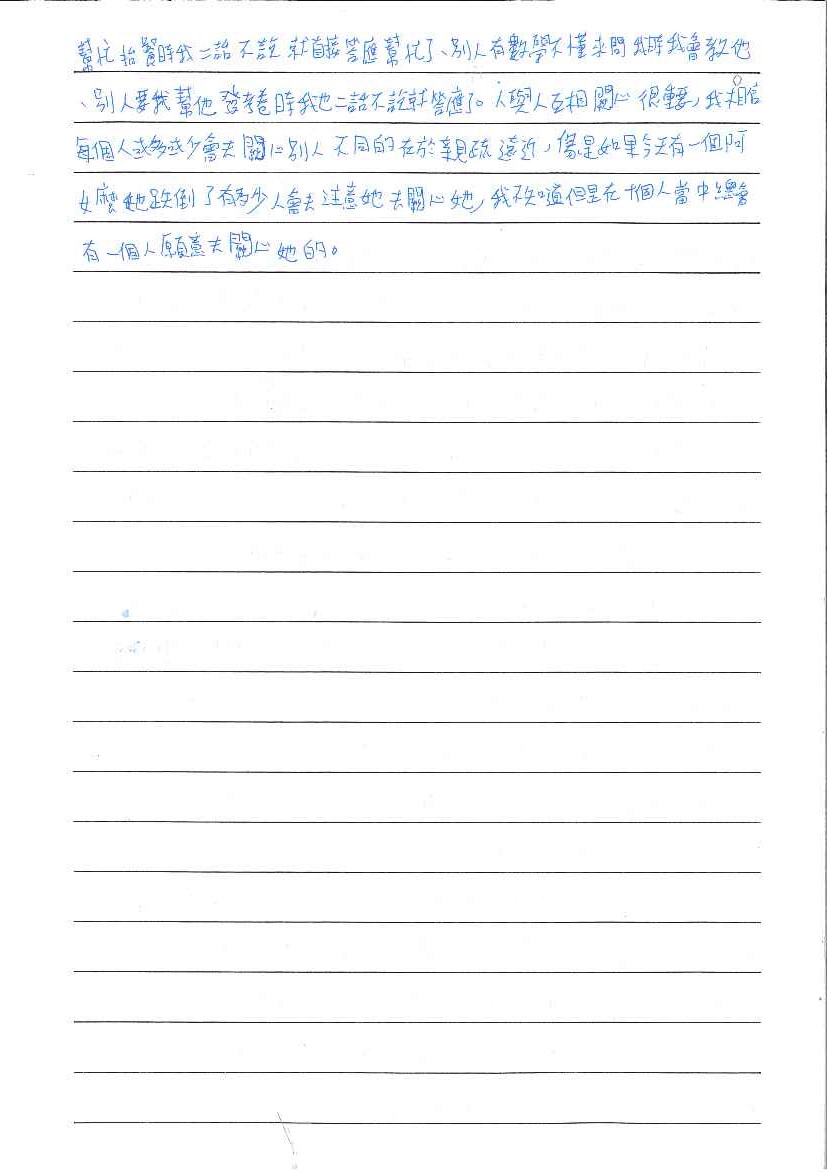 幫忙抬餐時我二話不說就直接答應幫忙了、別人有數學不懂來問我時我會教他
、別人要我幫他發考卷時我也二話不說就答應了。人與人互相關心很重要,我相信
每個人或多或少會去關心別人不同的在於親疏遠近,像是如果今天有一個阿
嬤她跌倒了有多少人會去注意她去關心她,我不知道但是在十個人當中總會
有一個人願意去關心她的。